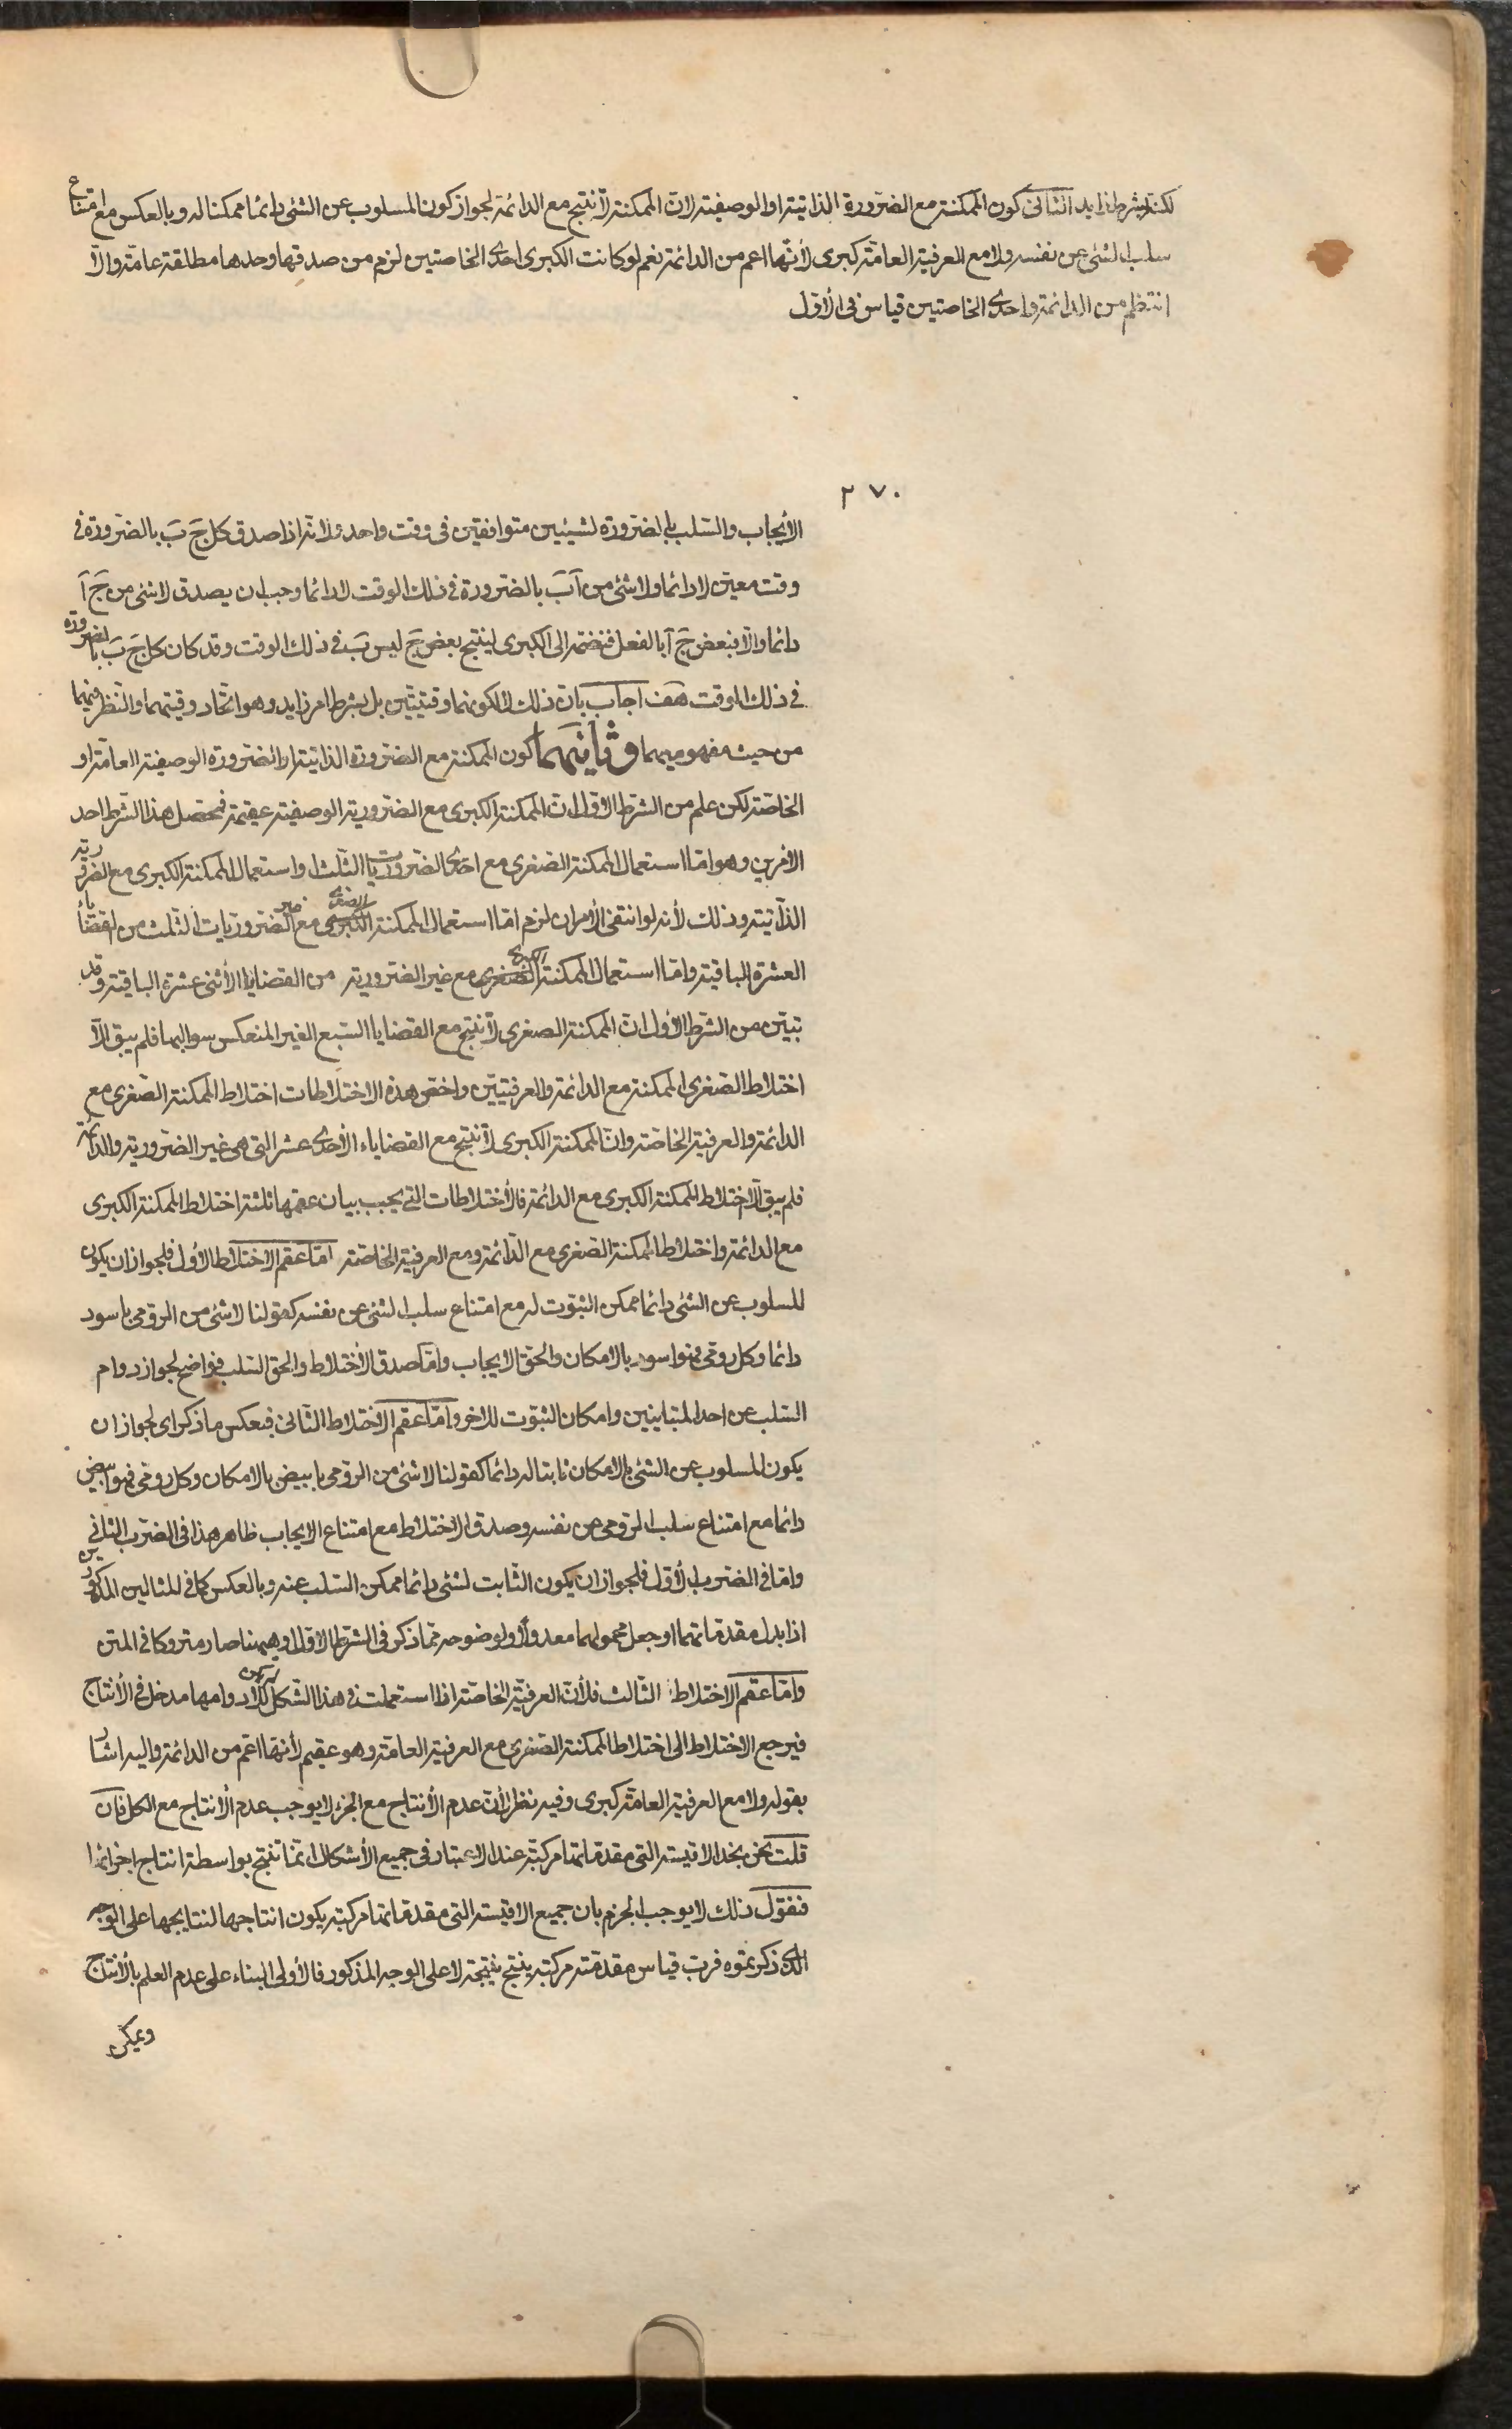 لكنه بشرط زايد الثاني كون الممكنة مع الضرورة الذاتية او الوصفية لان الممكنة لا تنتج مع الدائمة لجواز كون المسلوب عن الشئ دائما ممكنا له وبالعكس مع امتناع
سلب الشئ عن نفسه ولا مع العرفية العامة كبرى لأنها اعم من الدائمة نعم لو كانت الكبرى احدى الخاصتين لزم من صدقها وحدها مطلقة عامة والا
انتظم من الدائمة واحدى الخاصتين قياس في الاول
٢٧٠
الايجاب والسلب بالضرورة لشيئين متوافقين في وقت واحد ولانه اذا صدق كل جَ بَ بالضرورة في
وقت معين لا دائما ولا شئ من آ بَ بالضرورة في ذلك الوقت لا دائما وجب ان يصدق لا شئ من جَ آ
دائما والا فبعض جَ آ بالفعل فنضمه الى الكبرى لينتج بعض جَ ليس بَ في ذلك الوقت وقد كان كل جَ بَ بالضرورة
في ذلك الوقت هف اجاب بان ذلك لا لكونهما وقتيتين بل بشرط امر زايد وهو اتحاد وقتيهما والنظر فيهما
من حيث مفهوميهما وثانيهما كون الممكنة مع الضرورة الذاتية او الضرورة الوصفية العامة او
الخاصة لكن علم من الشرط الاول ان الممكنة الكبرى مع الضرورية الوصفية عقيمة فمحصل هذا الشرط احد
الامرين وهو اما استعمال الممكنة الصغرى مع احدى الضروريات الثلث او استعمال الممكنة الكبرى مع الضرورية
الذاتية وذلك لأنه لو انتفى الأمران لزم اما استعمال الممكنة الصغرى مع غير الضروريات الثلث من القضايا
العشرة الباقية واما استعمال الممكنة الكبرى مع غير الضرورية من القضايا الأثنى عشرة الباقية وقد
تبين من الشرط الأول ان الممكنة الصغرى لا تنتج مع القضايا السبع الغير المنعكس سوالبها فلم يبق الا
اختلاط الصغرى الممكنة مع الدائمة والعرفيتين واخص هذه الاختلاطات اختلاط الممكنة الصغرى مع
الدائمة والعرفية الخاصة وان الممكنة الكبرى لا تنتج مع القضاياء الاحدى عشر التي هي غير الضرورية والدائمة
فلم يبق الا اختلاط الممكنة الكبرى مع الدائمة فالأختلاطات التي يجب بيان عقمها ثلثة اختلاط الممكنة الكبرى
مع الدائمة واختلاط الممكنة الصغرى مع الدائمة ومع العرفية الخاصة اما عقم الاختلاط الأول فلجواز ان يكون
المسلوب عن الشئ دائما ممكن الثبوت له مع امتناع سلب الشئ عن نفسه كقولنا لا شئ من الرومي باسود
دائما وكل رومي فهو اسود بالامكان والحق الايجاب واما صدق الأختلاط والحق السلب فواضح لجواز دوام
السلب عن احد المتباينين وامكان الثبوت للاخر واما عقم الاختلاط الثاني فبعكس ما ذكر اى لجواز ان
يكون المسلوب عن الشئ بالامكان ثابتا له دائما كقولنا لا شئ من الرومي بابيض بالامكان وكل رومي فهو ابيض
دائما مع امتناع سلب الرومي عن نفسه وصدق الاختلاط مع امتناع الايجاب ظاهر هذا في الضرب الثاني
واما في الضرب الأول فلجواز ان يكون الثابت لشئ دائما ممكن السلب عنه وبالعكس كما في المثالين المذكورين
اذا بدل مقدماتهما او جعل محمولهما معدولا ولوضوحه مما ذكر في الشرط الاول وههنا صار متروكا في المتن
واما عقم الاختلاط الثالث فلأن العرفية الخاصة اذا استعملت في هذا الشكل لا يكون للادوامها مدخل في الأنتاج
فيرجع الاختلاط الى اختلاط الممكنة الصغرى مع العرفية العامة وهو عقيم لأنها اعم من الدائمة واليه اشار
بقوله ولا مع العرفية العامة كبرى وفيه نظر لأن عدم الأنتاج مع الجزء لا يوجب عدم الأنتاج مع الكل فان
قلت نحن نجد الاقيسة التي مقدماتها مركبة عند الاعتبار في جميع الأشكال انما تنتج بواسطة انتاج اجزائها
فنقول ذلك لا يوجب الجزم بان جميع الاقيسة التي مقدماتها مركبة يكون انتاجها لنتايجها على الوجه
الذى ذكرتموه فرب قياس مقدمته مركبة ينتج نتيجة لا على الوجه المذكور فالأولى البناء على عدم العلم بالأنتاج
ويمكن